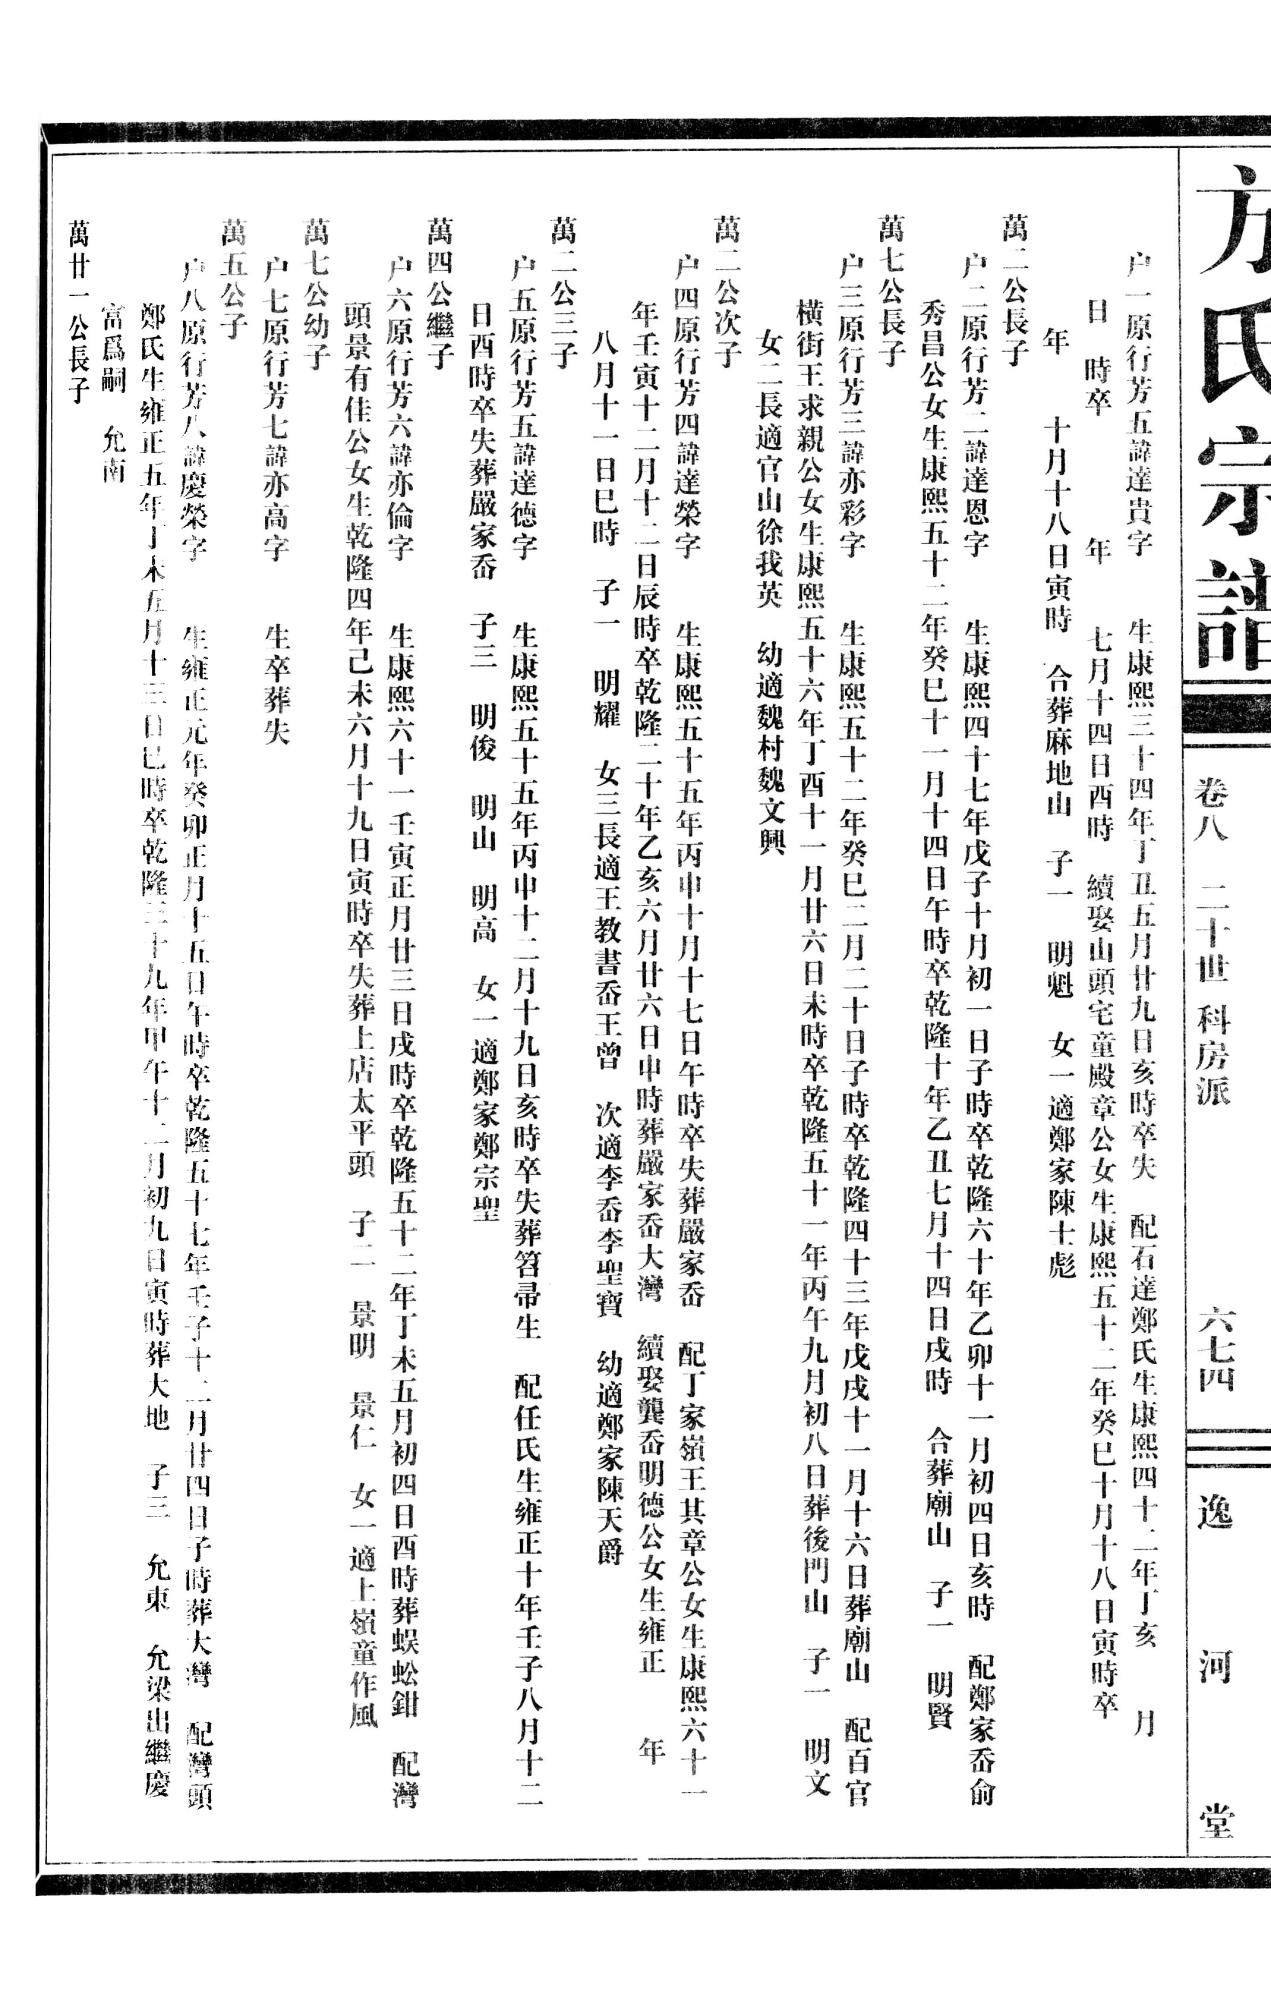 方氏宗譜
卷八 二十世 科房派
六七四
逸河堂
户一原行芳五諱達貴字 生康熙三十四年丁丑五月廿九日亥時卒失 配石達鄭氏生康熙四十二年丁亥 月
日 時卒 年 七月十四日酉時 續娶山頭宅童殿章公女生康熙五十二年癸巳十月十八日寅時卒
年 十月十八日寅時 合葬麻地山 子一 明魁 女一適鄭家陳士彪
萬二公長子
户二原行芳二諱達恩字 生康熙四十七年戊子十月初一日子時卒乾隆六十年乙卯十一月初四日亥時 配鄭家岙俞
秀昌公女生康熙五十二年癸巳十一月十四日午時卒乾隆十年乙丑七月十四日戌時 合葬廟山 子一 明賢
萬七公長子
户三原行芳三諱亦彩字 生康熙五十二年癸巳二月二十日子時卒乾隆四十三年戊戌十一月十六日葬廟山 配百官
橫街王求親公女生康熙五十六年丁酉十一月廿六日未時卒乾隆五十一年丙午九月初八日葬後門山 子一 明文
女二長適官山徐我英 幼適魏村魏文興
萬二公次子
户四原行芳四諱達榮字 生康熙五十五年丙申十月十七日午時卒失葬嚴家岙 配丁家嶺王其章公女生康熙六十一
年壬寅十二月十二日辰時卒乾隆二十年乙亥六月廿六日申時葬嚴家岙大灣 續娶龔岙明德公女生雍正 年
八月十一日巳時 子一 明耀 女三長適王教書岙王曾 次適李岙李聖寶 幼適鄭家陳天爵
萬二公三子
户五原行芳五諱達德字 生康熙五十五年丙申十二月十九日亥時卒失葬笤帚生 配任氏生雍正十年壬子八月十二
日酉時卒失葬嚴家岙 子三 明俊 明山 明高 女一適鄭家鄭宗聖
萬四公繼子
户六原行芳六諱亦倫字 生康熙六十一壬寅正月廿三日戌時卒乾隆五十二年丁未五月初四日酉時葬蜈蚣鉗 配灣
頭景有佳公女生乾隆四年己未六月十九日寅時卒失葬上店太平頭 子二 景明 景仁 女一適上嶺童作風
萬七公幼子
户七原行芳七諱亦高字 生卒葬失
萬五公子
户八原行芳八諱慶榮字 生雍正元年癸卯正月十五日午時卒乾隆五十七年壬子十二月廿四日子時葬大灣 配灣頭
鄭氏生雍正五年丁未五月十三日巳時卒乾隆三十九年甲午十二月初九日寅時葬大地 子三 允東 允梁出繼慶
富爲嗣 允南
萬廿一公長子